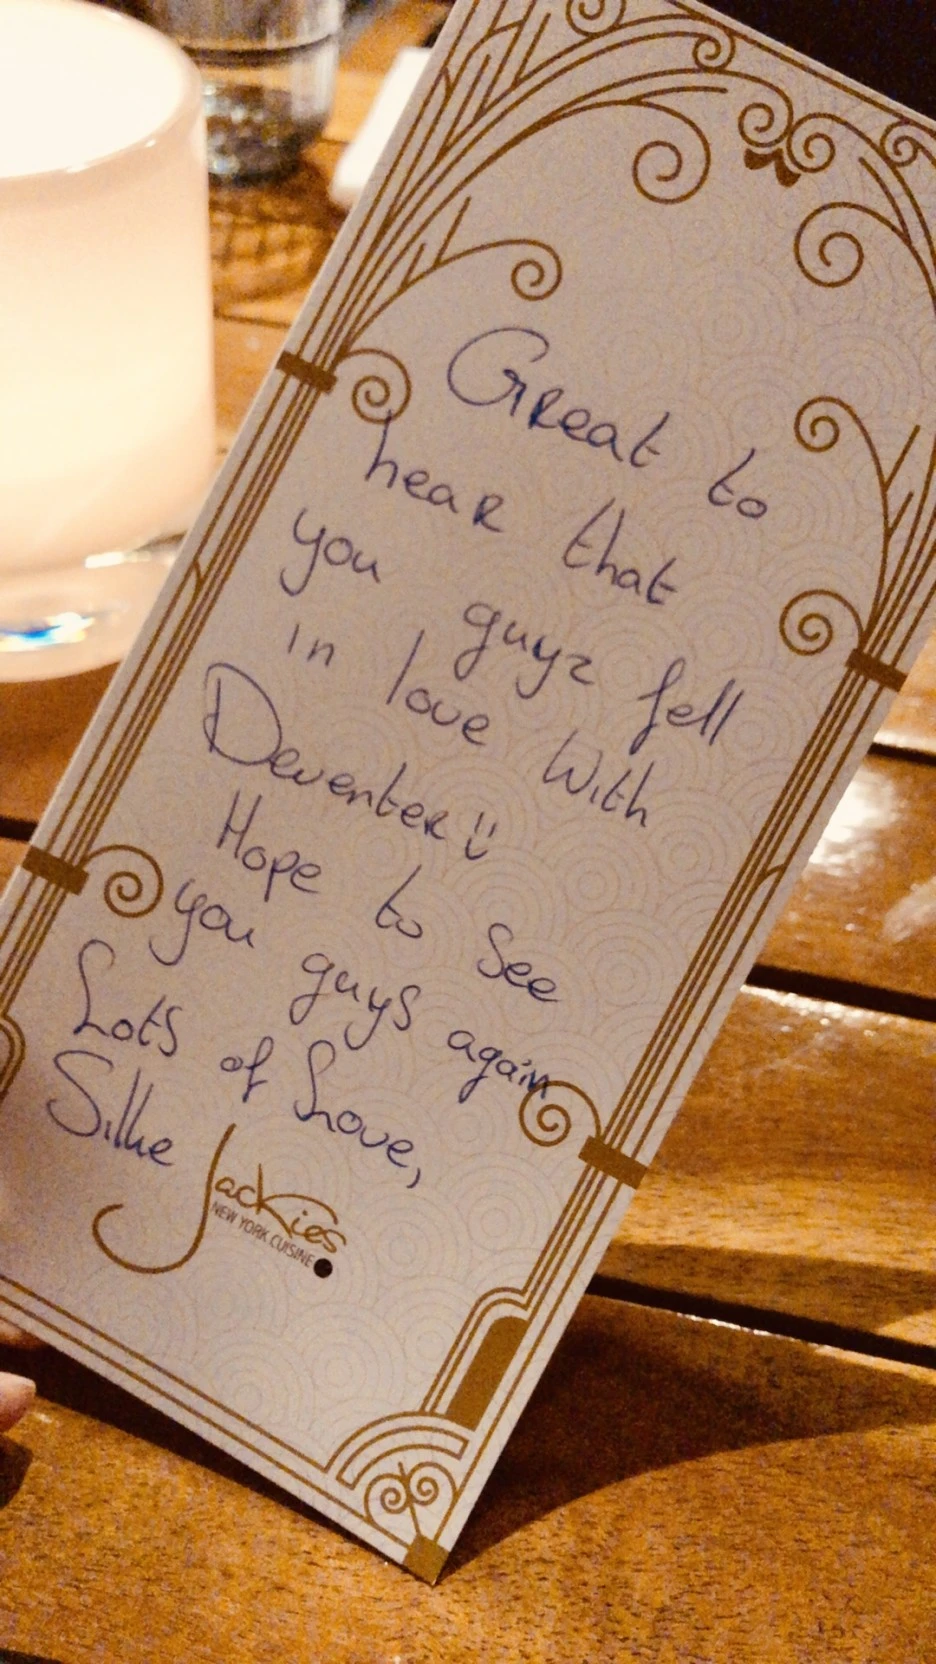 Great to
hear that
you guyz fell
in love With
Deventer!!
Hope to See
you guys again
Lots of Love,
Silke
Jackies
NEW YORK CUISINE